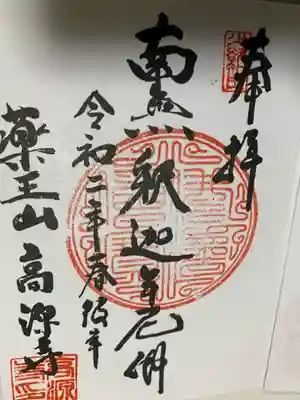 奉拝
南無釈迦牟尼佛
令和二年春彼岸
薬王山 高源寺